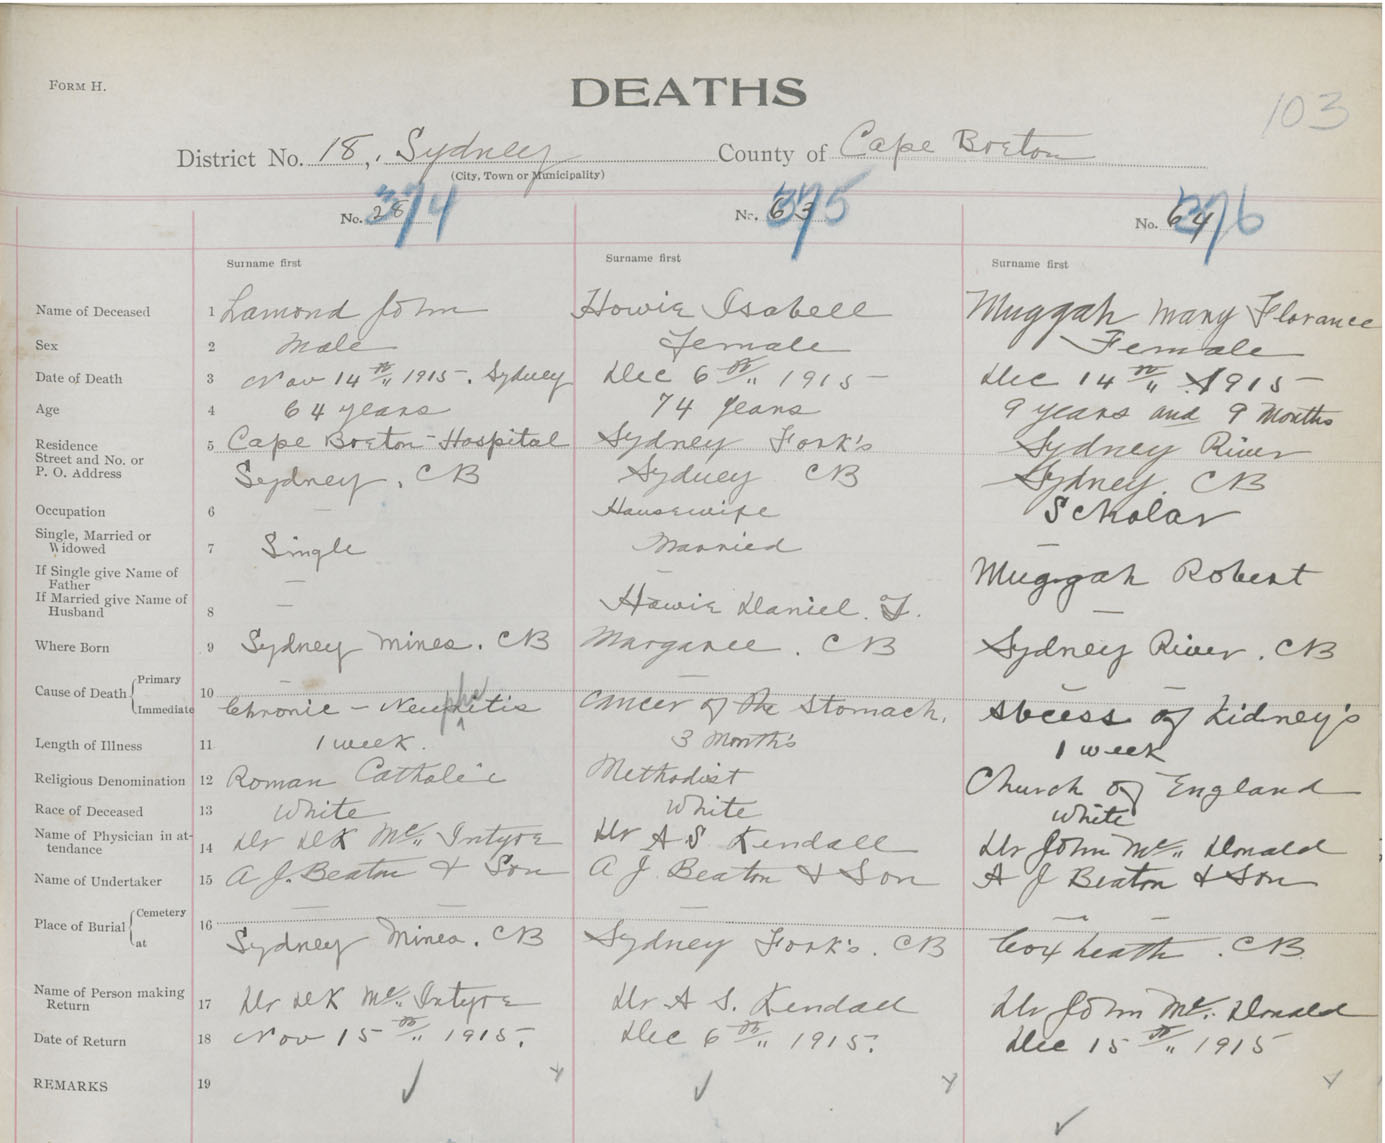 FORM H.
DEATHS
103
District No. 18, Sydney County of Cape Breton
(City, Town or Municipality)
No. 28 374 No. 63 375 No. 64 376
Surname first Surname first Surname first
Name of Deceased 1 Lamond John Howie Isabell Muggah Mary Florance
Sex 2 Male Female Female
Date of Death 3 Nov 14th 1915. Sydney Dec 6th 1915 Dec 14th 1915
Age 4 64 years 74 years 9 years and 9 Months
Residence 5 Cape Breton Hospital Sydney Fork's Sydney River
Street and No. or
P. O. Address Sydney. CB Sydney CB Sydney. CB
Occupation 6 — Housewife Scholar
Single, Married or
Widowed 7 Single Married —
If Single give Name of
Father — — Muggah Robert
If Married give Name of
Husband 8 — Howie Daniel. —
Where Born 9 Sydney Mines. CB Margaree. CB Sydney River. CB
Cause of Death { Primary 10 — — — —
Immediate Chronic - Neuphritis Cancer of the Stomach. Abcess of Kidney's
Length of Illness 11 1 week. 3 Month's 1 week
Religious Denomination 12 Roman Catholic Methodist Church of England
Race of Deceased 13 White White White
Name of Physician in at-
tendance 14 Dr DK Mc Intyre Dr A S. Kendall Dr John Mc Donald
Name of Undertaker 15 A J. Beaton & Son A J Beaton & Son A J Beaton & Son
Place of Burial { Cemetery 16 — — — — —
at Sydney Mines. CB Sydney Fork's. CB Coxheath. CB
Name of Person making
Return 17 Dr DK Mc Intyre Dr A S. Kendall Dr John Mc Donald
Date of Return 18 Nov 15th 1915. Dec 6th 1915. Dec 15th 1915
REMARKS 19